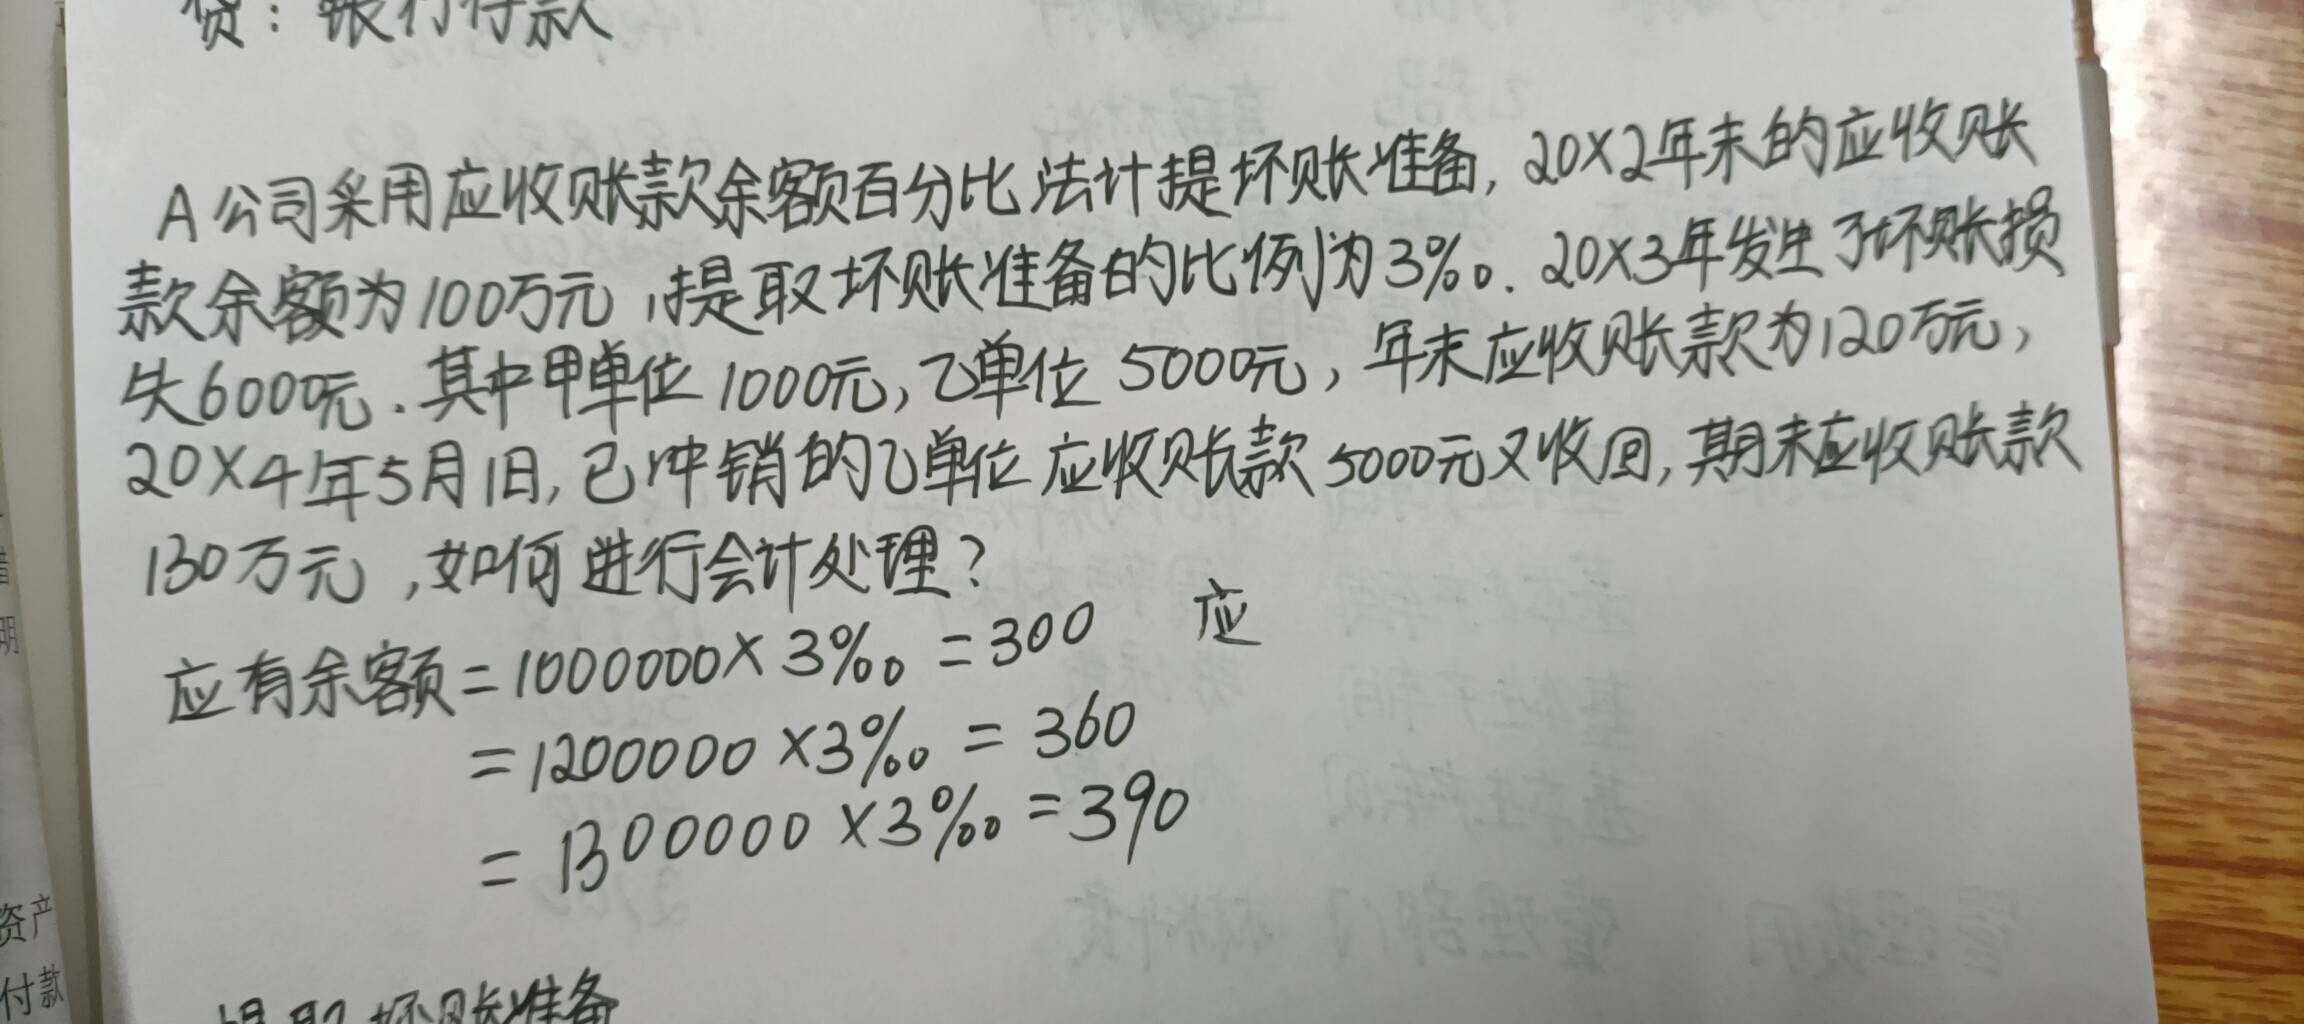 贷：银行存款
A公司采用应收账款余额百分比法计提坏账准备，20X2年末的应收账
款余额为100万元，提取坏账准备的比例为3‰。20X3年发生了坏账损
失6000元．其中甲单位1000元，乙单位5000元，年末应收账款为120万元，
20X4年5月1日，已冲销的乙单位应收账款5000元又收回，期末应收账款
130万元，如何进行会计处理？
应有余额=1000000×3‰=300 应
=1200000×3‰=360
=1300000×3‰=390
提取坏账准备
资产
付款